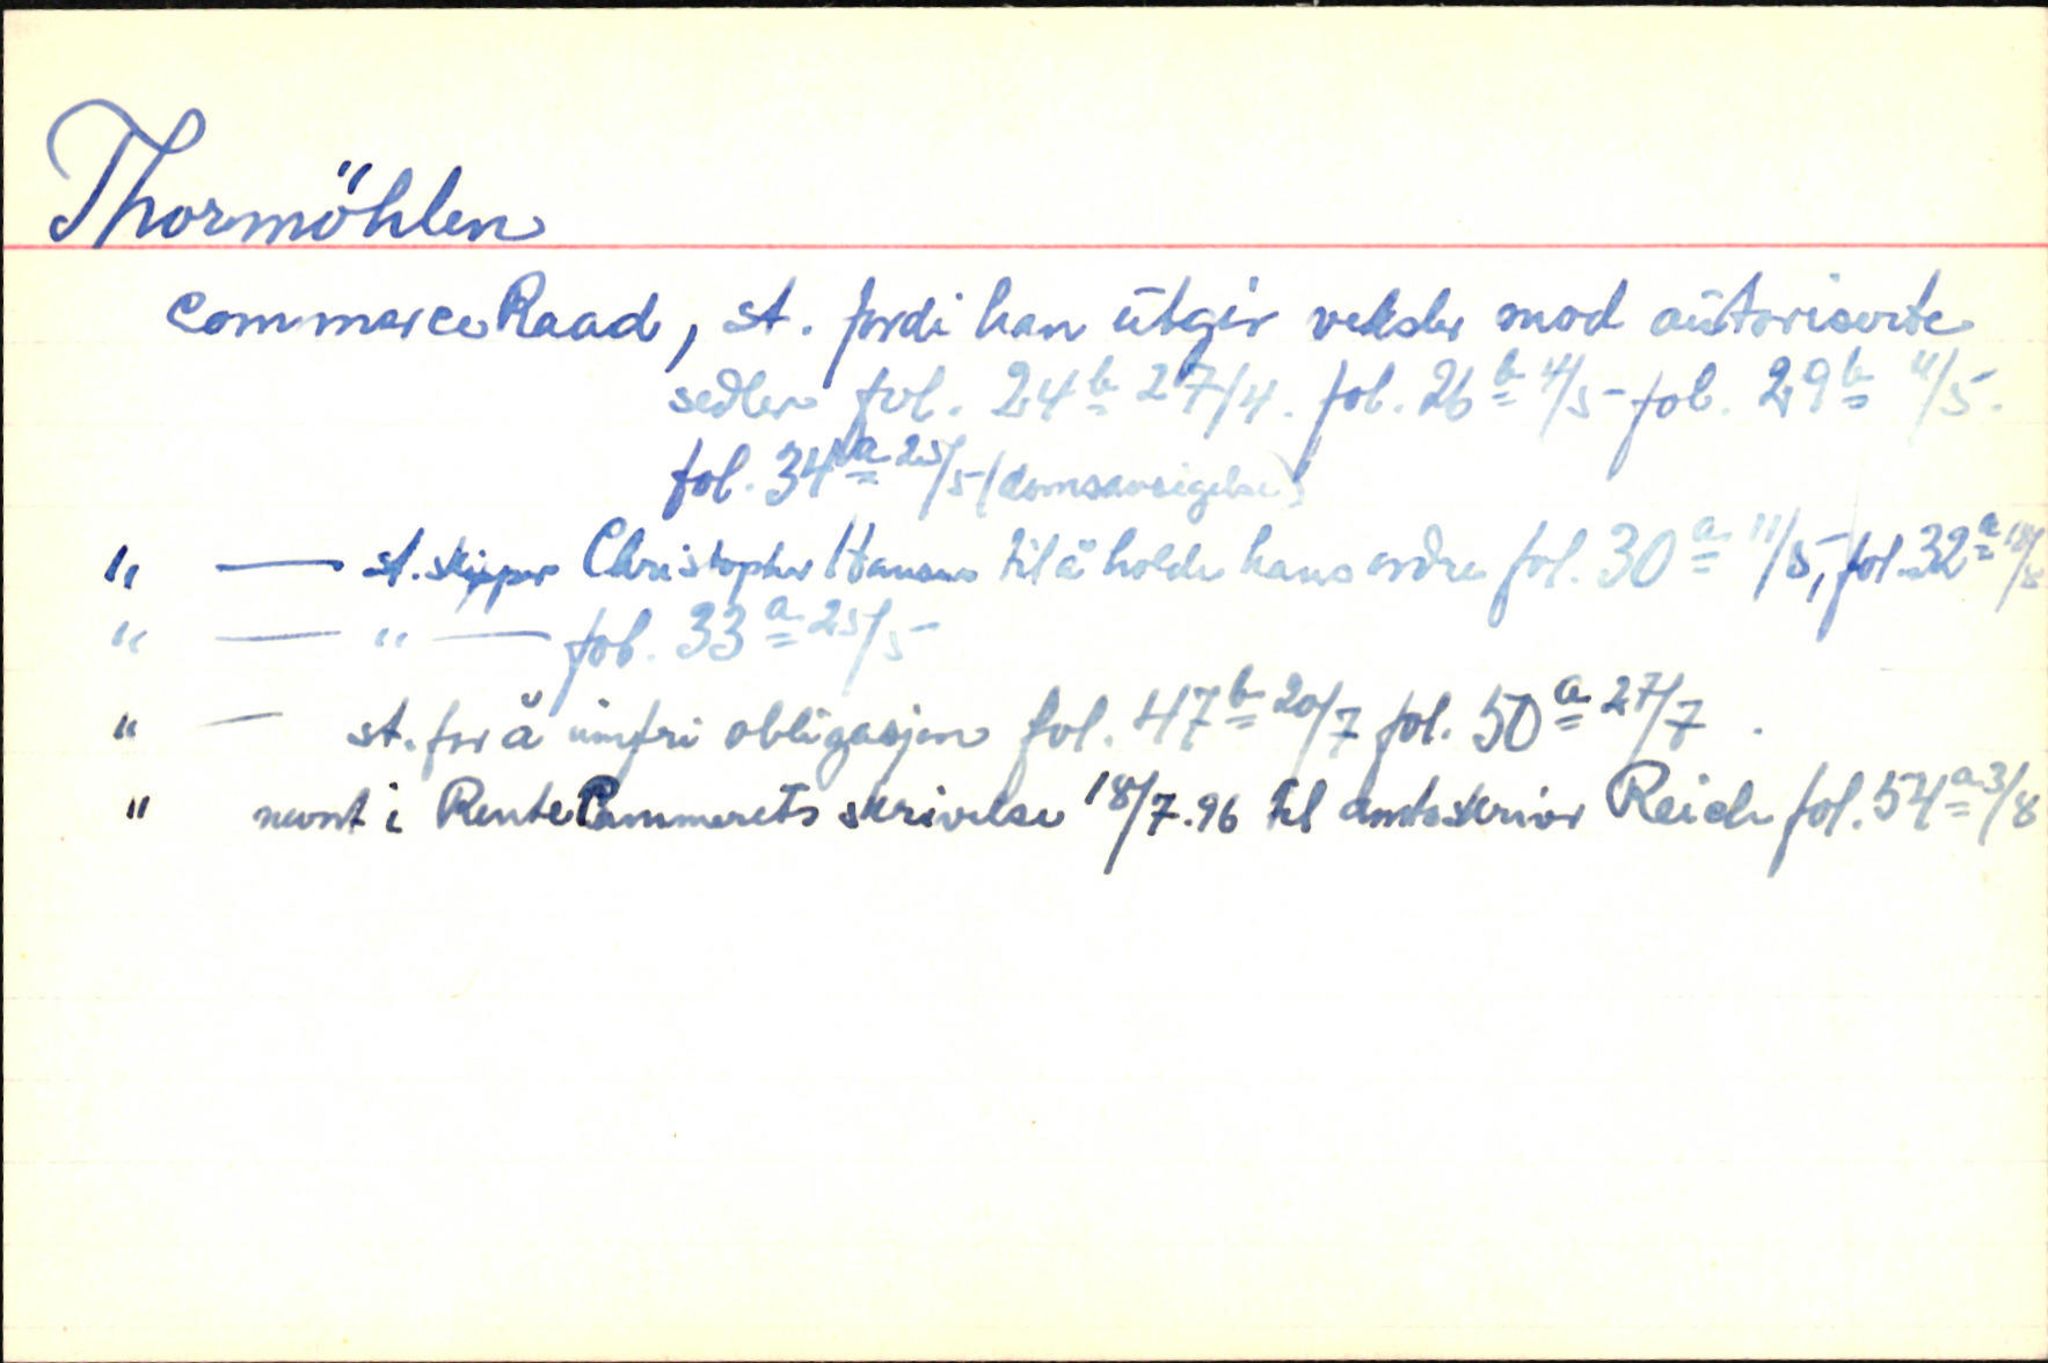 Thormöhlen
CommerceRaad, st. fordi han utgir veksler mod autoriserte
sedler fol. 24b 27/4. fol. 26b 4/5 - fol. 29b 11/5.
fol. 34a 25/5 (domsavsigelse)
" — st. skipper Christopher Hansen til å holde hans ordre fol. 30a 11/5, fol. 32a 18/5
" — " — fol. 33a 25/5
" — st. for å innfri obligasjon fol. 47b 20/7 fol. 50a 27/7.
" nevnt i RenteCammerets skrivelse 18/7.96 til amtsskriver Reich fol. 54a 3/8